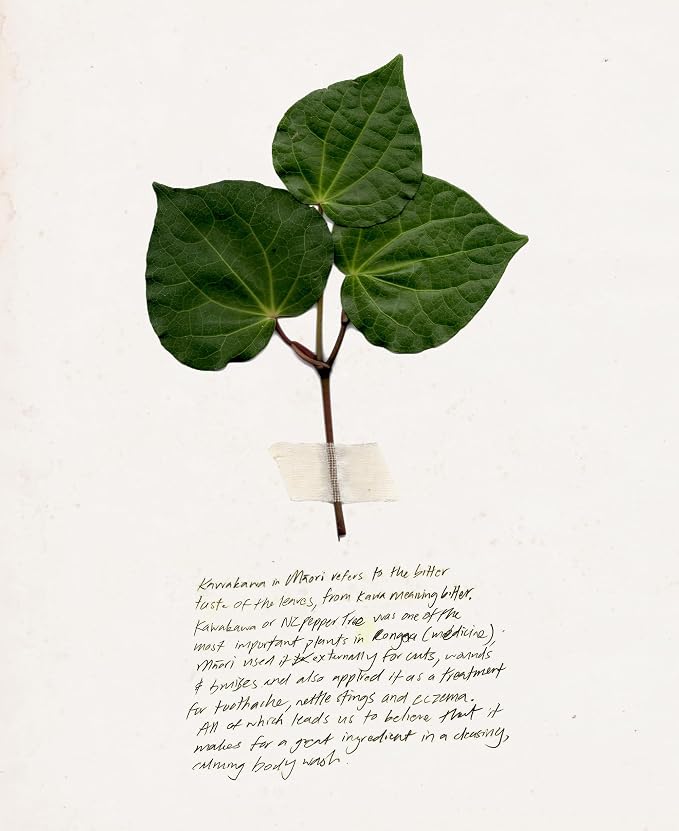 Kawakawa in Māori refers to the bitter
taste of the leaves, from Kawa meaning bitter.
Kawakawa or NZ Pepper Tree was one of the
most important plants in Rongoa (medicine).
Māori used it externally for cuts, wounds
& bruises and also applied it as a treatment
for toothache, nettle stings and eczema.
All of which leads us to believe that it
makes for a great ingredient in a cleasing,
calming body wash.